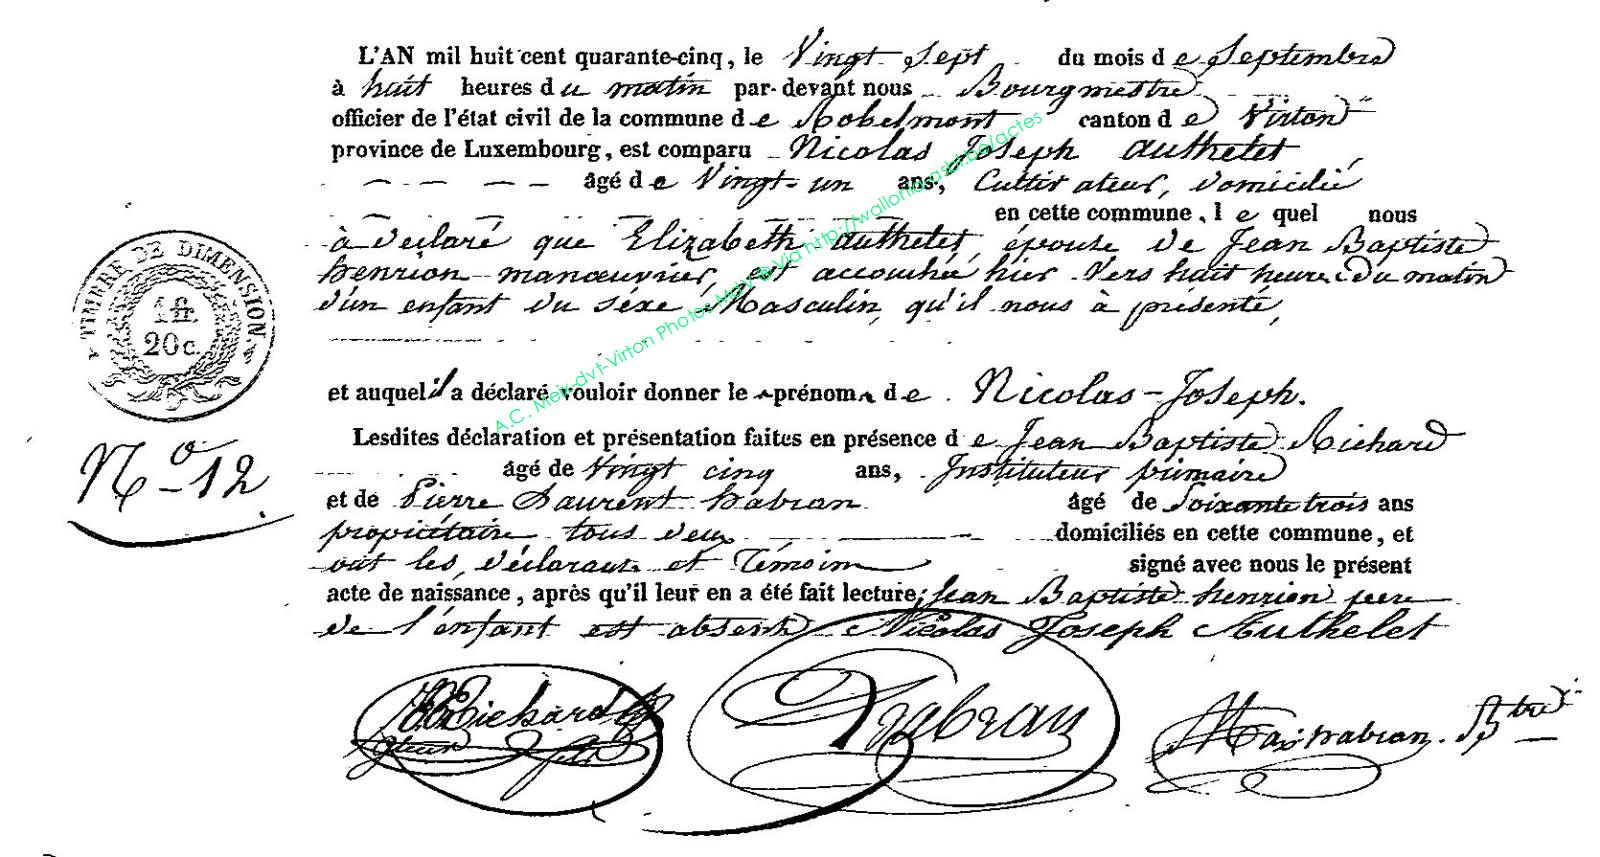 L'AN mil huit cent quarante-cinq, le Vingt Sept du mois de Septembre
à huit heures du matin par-devant nous Bourgmestre
officier de l'état civil de la commune de Robelmont canton de Virton
province de Luxembourg, est comparu Nicolas Joseph Authelet,
âgé de Vingt-un ans, Cultivateur, domicilié
en cette commune, lequel nous
à déclaré que Elizabeth authelet, épouse de Jean Baptiste
henrion manœuvrier, est accouchée hier vers huit heures du matin
d'un enfant du séxe Masculin, qu'il nous à présenté,
et auquel il a déclaré vouloir donner le prénom de Nicolas-Joseph.
Lesdites déclaration et présentation faites en présence de Jean Baptiste Richard
âgé de Vingt cinq ans, Instituteur primaire
et de Pierre Laurent habran âgé de Soixante trois ans
propriétaire tous deux domiciliés en cette commune, et
ont les déclarant et Témoins signé avec nous le présent
acte de naissance, après qu'il leur en a été fait lecture; Jean Baptiste henrion pere
de l'enfant est absent Nicolas Joseph Authelet
Richard habran Max habran. Btre
TIMBRE DE DIMENSION.
1 fr.
20 c.
No 12
A.C. Meix-dvt-Virton Photos MdV © Via http://wallonia.asbl.be/actes